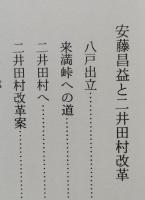 安藤昌益と二井田村改革
八戸出立……………
来満峠への道…………
二井田村へ……………
二井田村改革案………